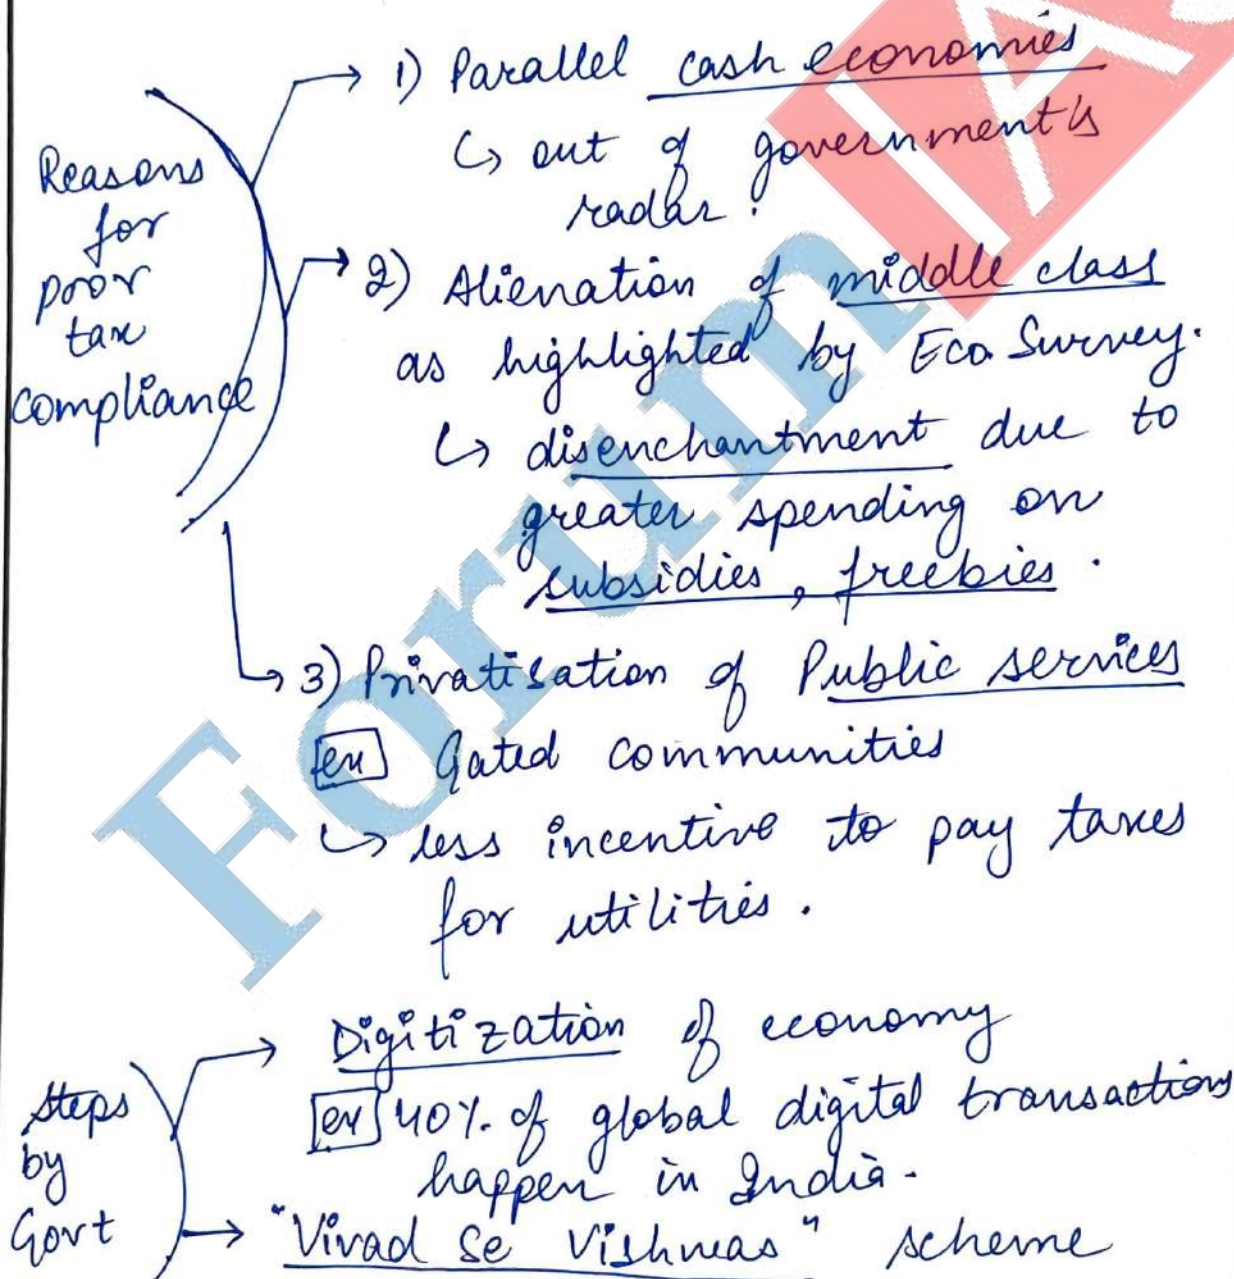 Reasons
for
poor
tax
compliance
1) Parallel cash economies
↳ out of government's
radar.
2) Alienation of middle class
as highlighted by Eco Survey.
↳ disenchantment due to
greater spending on
subsidies, freebies.
3) Privatisation of Public services
ex Gated communities
↳ less incentive to pay taxes
for utilities.
Steps
by
Govt
Digitization of economy
ex 40% of global digital transactions
happen in India.
"Vivad Se Vishwas" scheme
ForumIAS